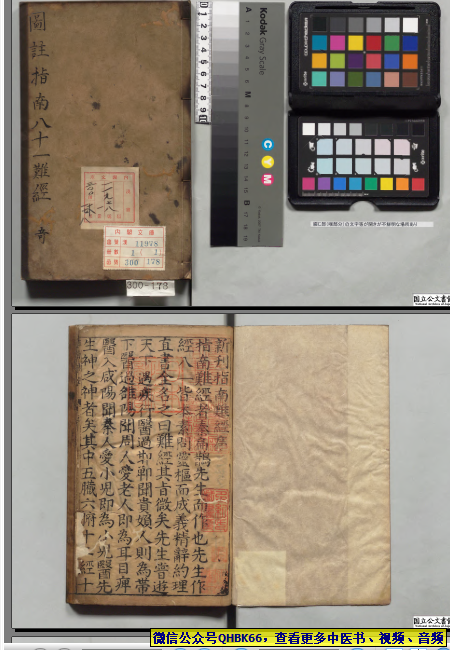 圖註指南八十一難經 奇
Kodak
Gray Scale
C
Y
M
内閣文庫
番號 漢 11978
冊數 1 ( 1 )
函號 300 178
300-178
国立公文書館
新刊指南難經序
指南難經者秦為鵲先生而作也先生作
經八十一皆本素問靈樞而成義精辭約理
直書全名之曰難經其旨微矣先生嘗遊
天下遇疾行醫過邯鄲聞貴婦人則為帶
下醫過雒陽聞周人愛老人即為耳目痺
醫入咸陽聞秦人愛小兒即為小兒醫先
生神之神者矣其中五臟六腑十二經十
国立公文書館
微信公众号QHBK66，查看更多中医书、视频、音频